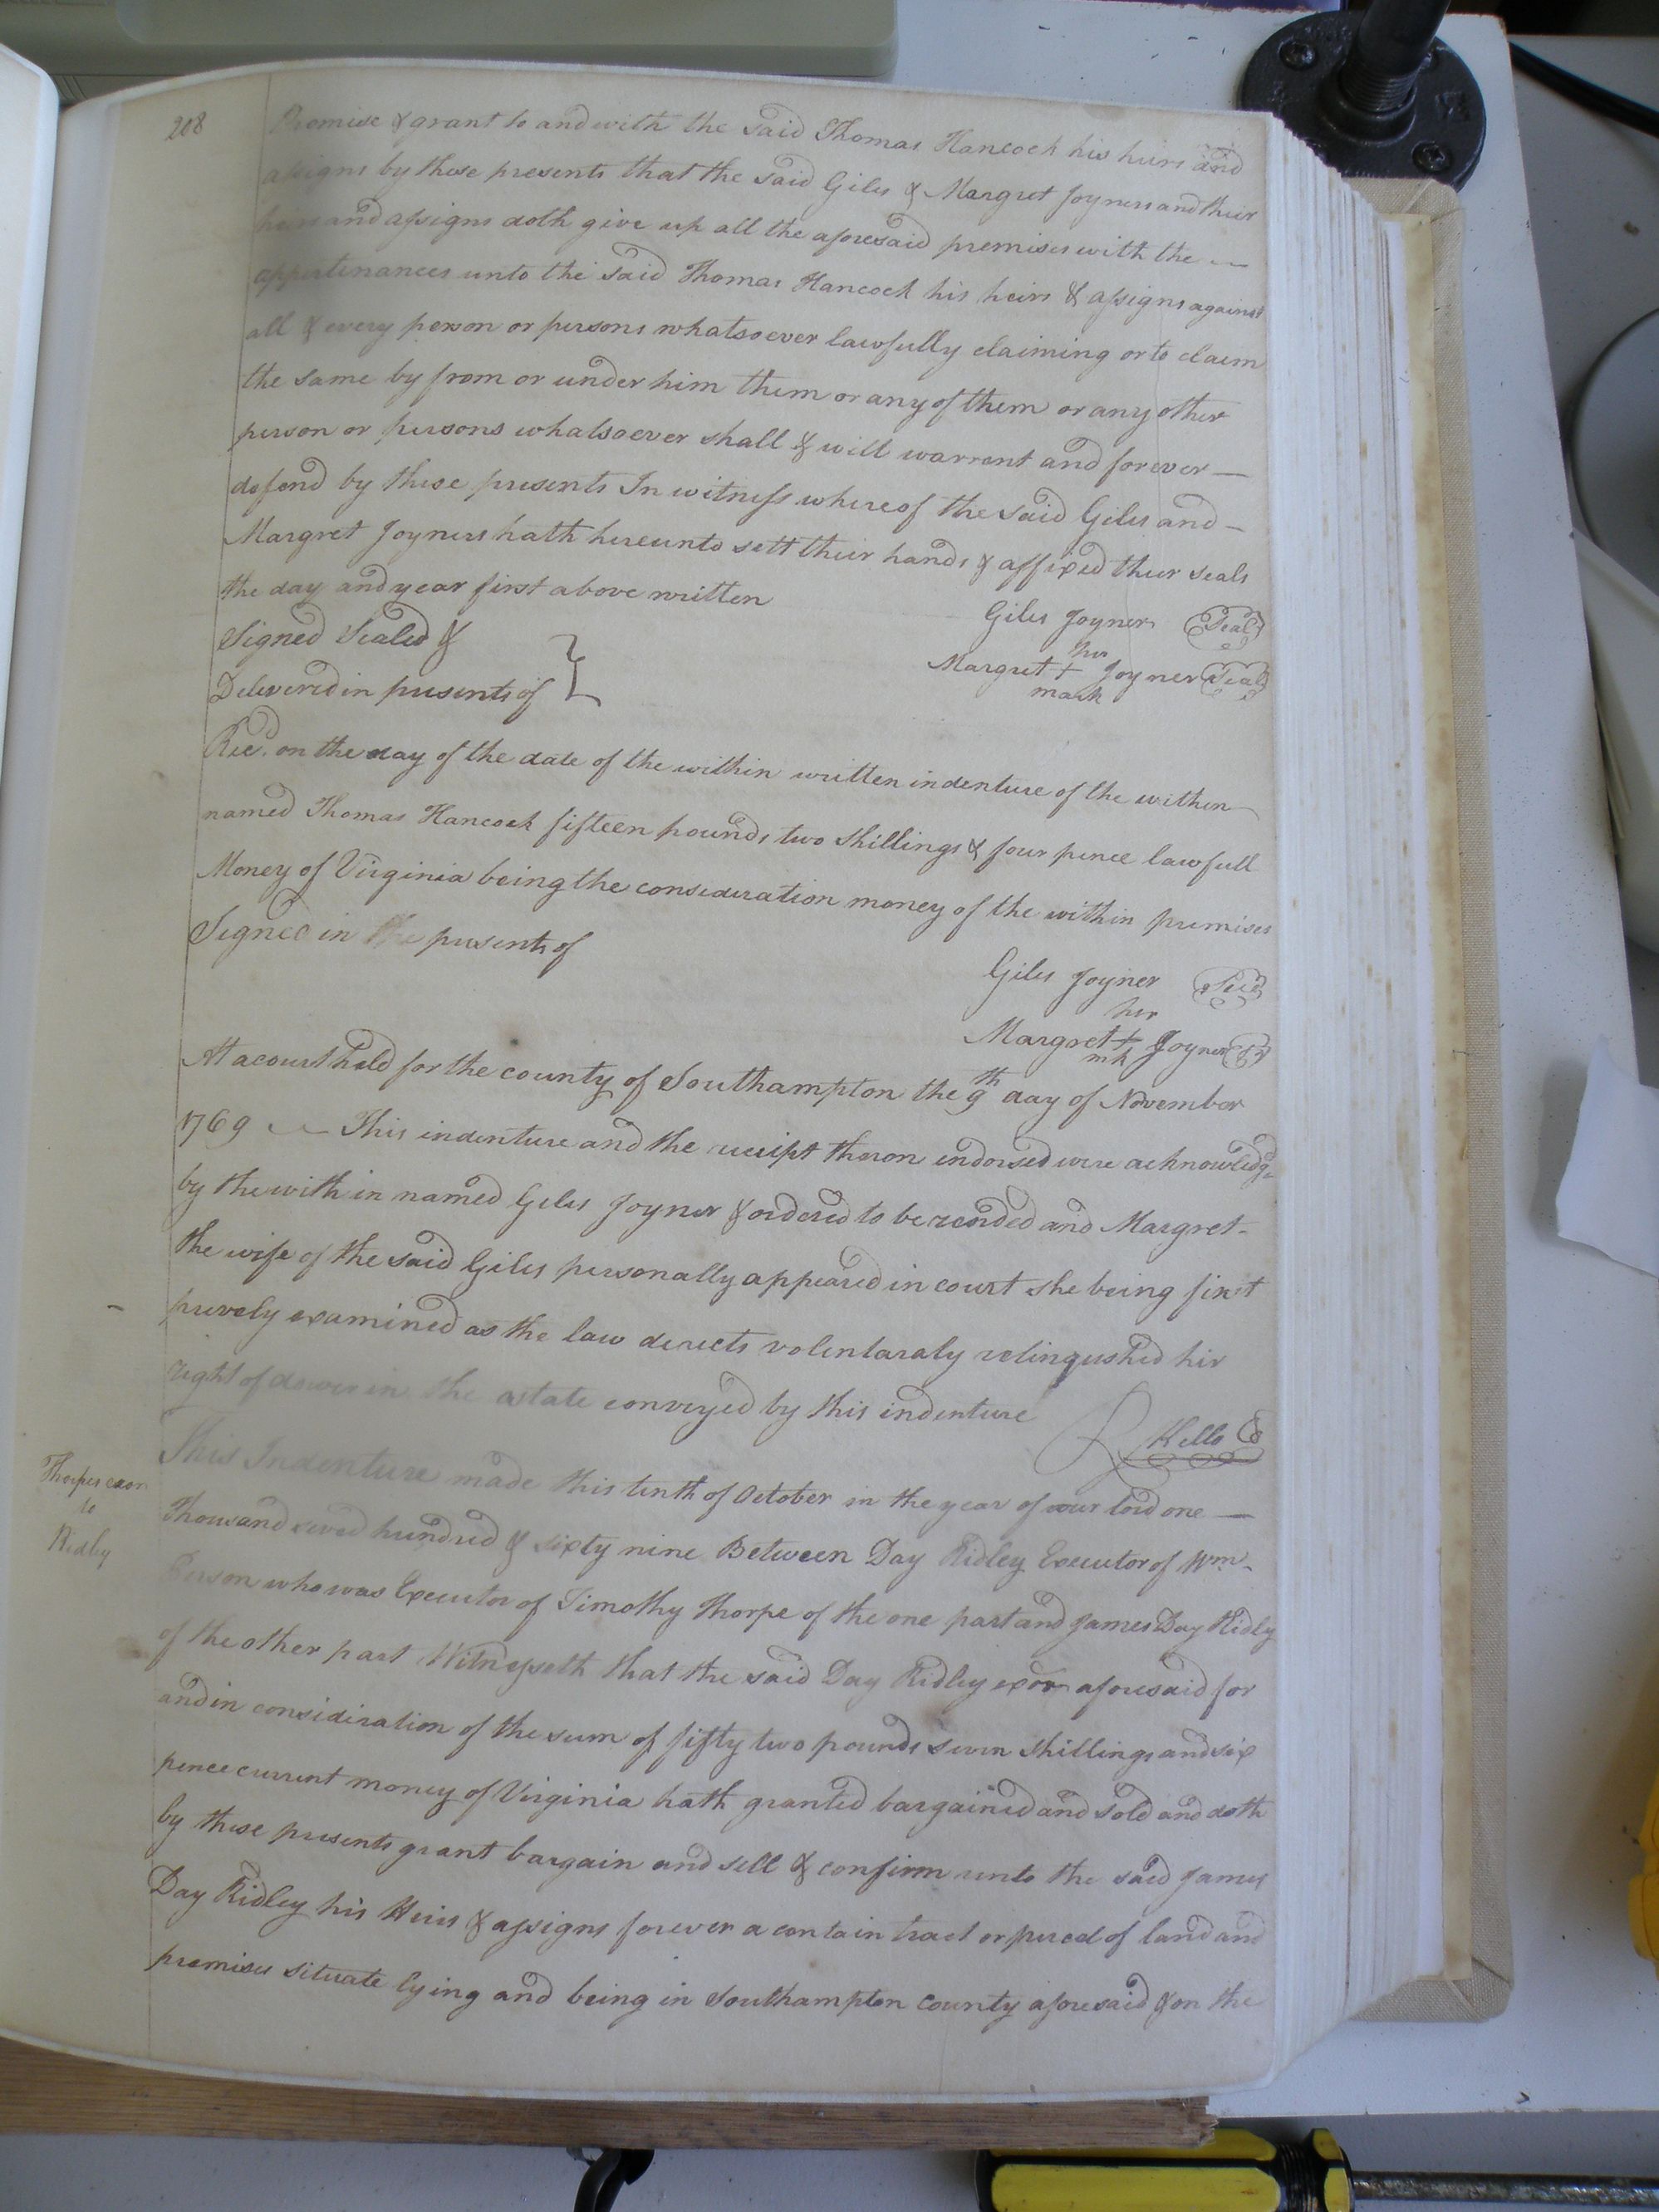 208
Promise & grant to and with the said Thomas Hancock his heirs and
assigns by these presents that the said Giles & Margret Joyners and their
heirs and assigns doth give up all the aforesaid premises with the —
appertinances unto the said Thomas Hancock his heirs & assigns against
all & every person or persons whatsoever lawfully claiming or to claim
the same by from or under him them or any of them or any other
person or persons whatsoever shall & will warrent and forever —
defend by these presents In witness whereof the said Giles and —
Margret Joyners hath hereunto sett their hands & affixed their seals
the day and year first above written
Giles Joyner Seal
Signed Sealed &
her
Margret + Joyner Seal
mark
Delivered in presents of
Recd. on the day of the date of the within written indenture of the within
named Thomas Hancock fifteen pounds two shillings & four pence lawfull
Money of Virginia being the consideration money of the within premises
Signed in the presents of
Giles Joyner Seal
her
Margret + Joyner
mk
At a court held for the county of Southampton the 9th day of November
1769 — This indenture and the receipt theron endorsed were acknowledge
by the with in named Giles Joyner & ordered to be recorded and Margret -
the wife of the said Giles personally appeared in court she being first
prively examined as the law derects volentaraly relingushed hir
right of dower in the astate conveyed by this indenture
R Kello
This Indenture made this tenth of October in the year of our lord one —
Thorpes exor
to
Ridley
Thousand seven hundred & sixty nine Between Day Ridley Executor of Wm.
Person who was Executor of Timothy Thorpe of the one part and James Day Ridly
of the other part Witnesseth that the said Day Ridley exor aforesaid for
and in consideration of the sum of fifty two pounds seven shillings and six
pence current money of Virginia hath granted bargained and sold and doth
by these presents grant bargain and sell & confirm unto the said James
Day Ridley his Heirs & assigns forever a contain tract or purcel of land and
premises situate lying and being in Southampton County aforesaid & on the